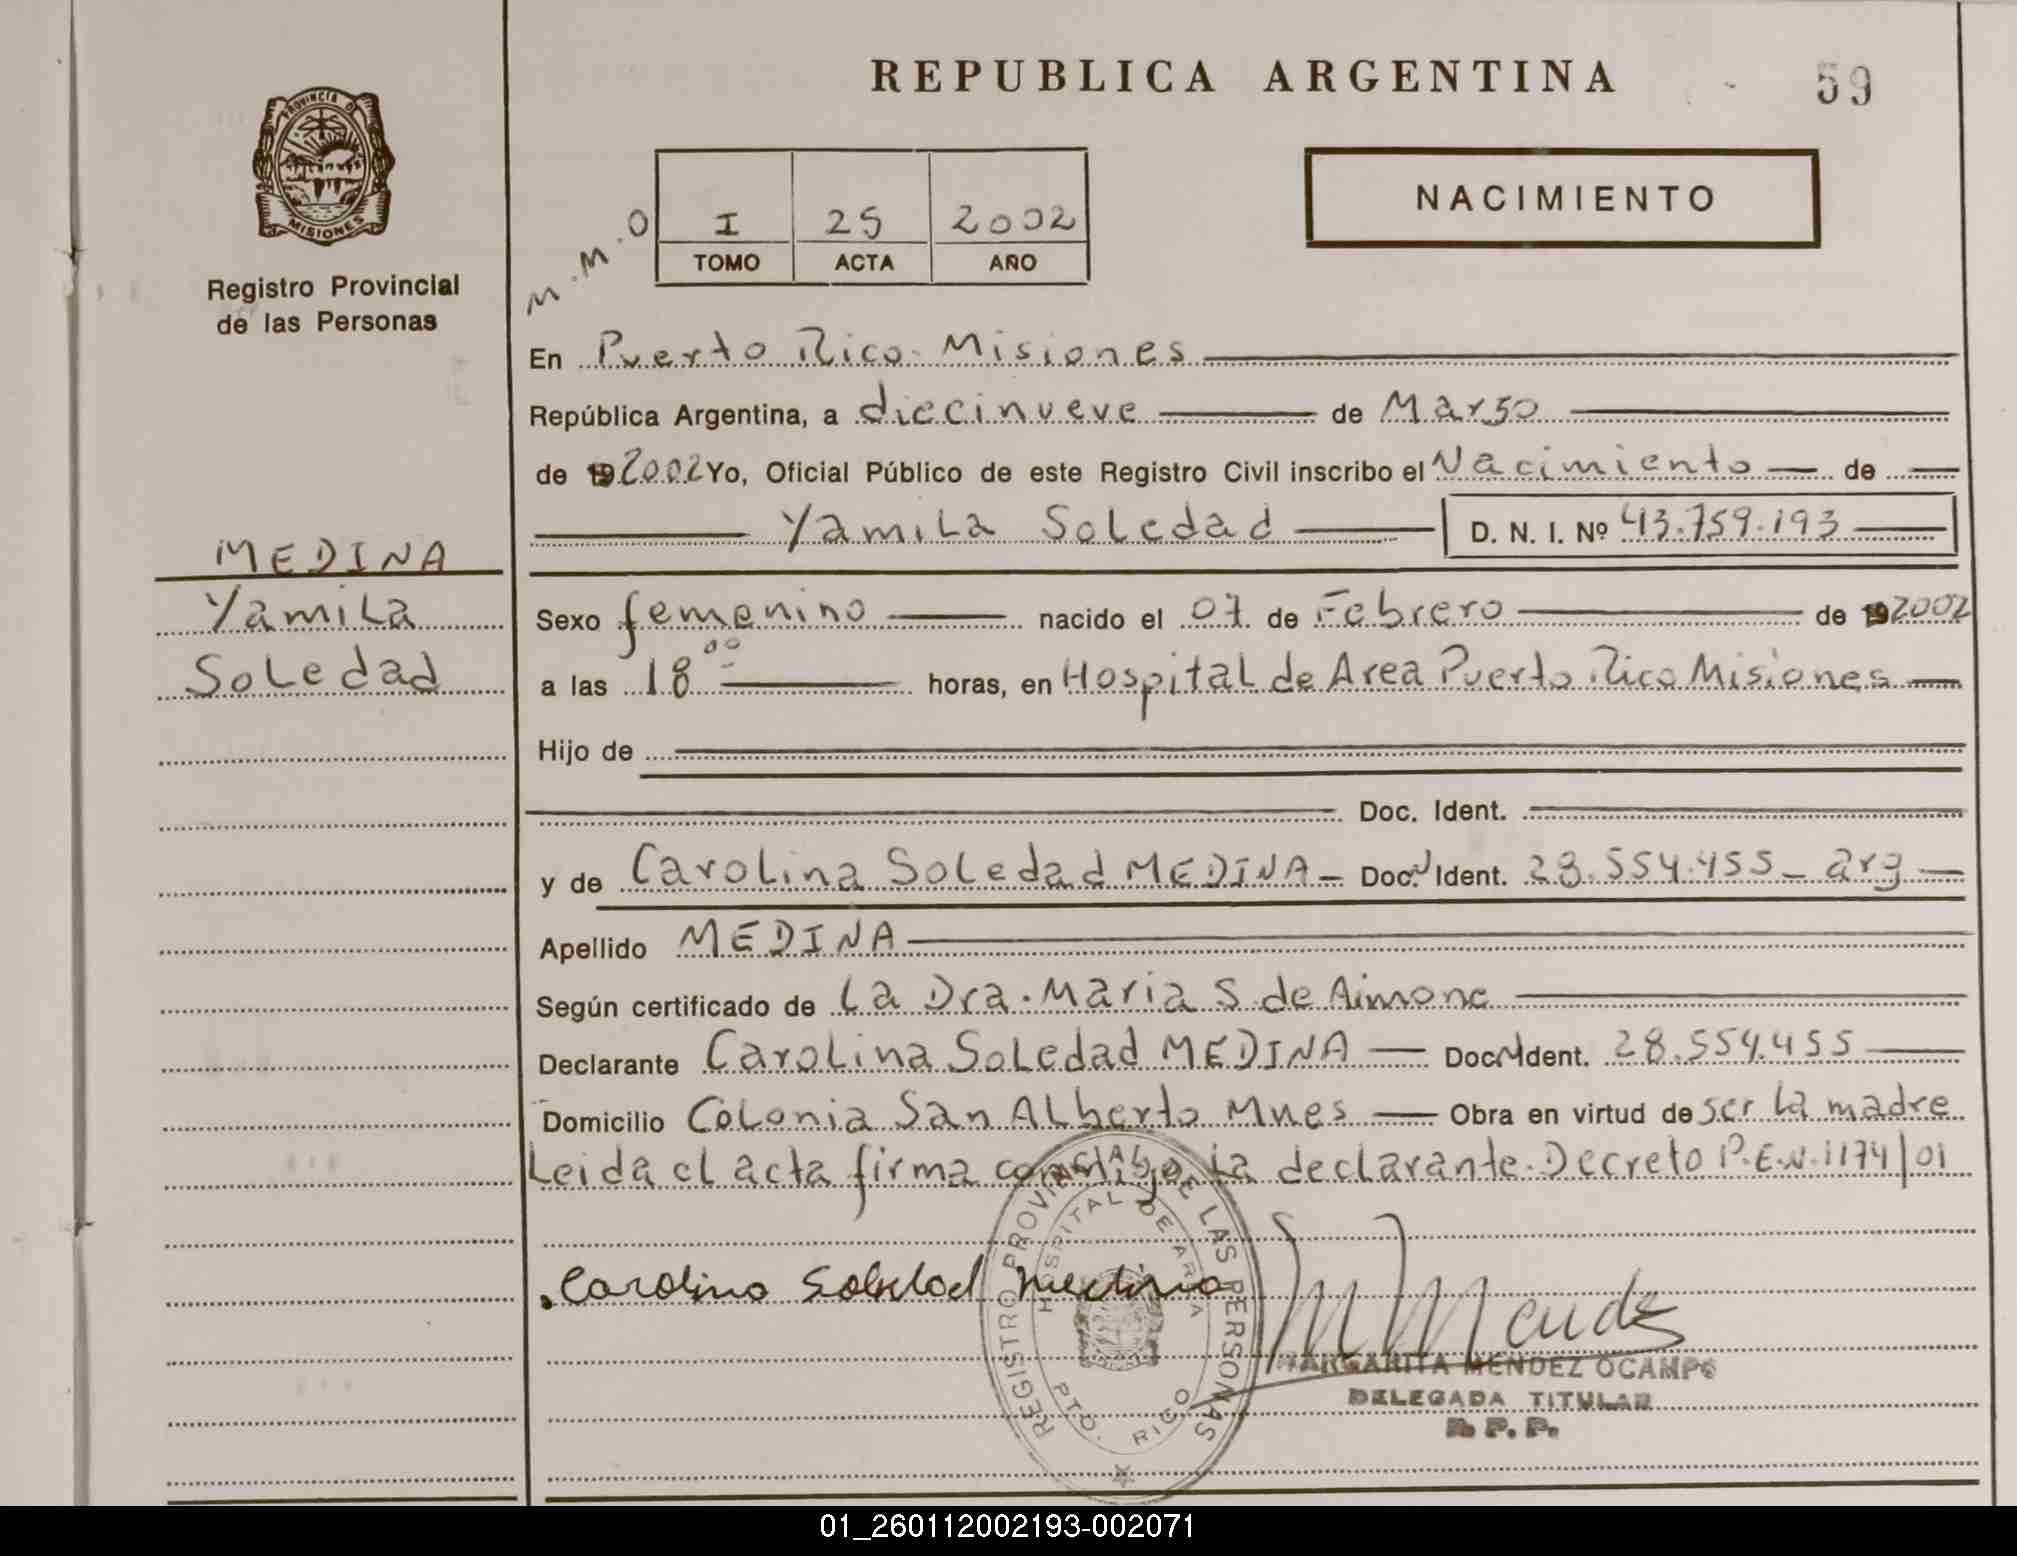 REPUBLICA ARGENTINA
59
PROVINCIA D
MISIONES
Registro Provincial
de las Personas
NACIMIENTO
M.M.O
I 25 2002
TOMO ACTA AÑO
En Puerto Rico. Misiones
República Argentina, a diecinueve de Marso
de 19 2002 Yo, Oficial Público de este Registro Civil inscribo el Nacimiento de
Yamila Soledad D. N. I. Nº 43.759.193
MEDINA
Yamila
Soledad
Sexo femenino nacido el 07 de Febrero de 19 2002
a las 18 00 horas, en Hospital de Area Puerto Rico Misiones
Hijo de
Doc. Ident.
y de Carolina Soledad MEDINA Doc. Ident. 28.554.455 arg
Apellido MEDINA
Según certificado de La Dra. Maria S. de Aimone
Declarante Carolina Soledad MEDINA Doc. Ident. 28.554.455
Domicilio Colonia San Alberto Mnes Obra en virtud de ser la madre
Leida el acta firma conmigo la declarante. Decreto P.E.N. 1174/01
Carolina Soledad Medina
M Mendez
MARGARITA MENDEZ OCAMPO
DELEGADA TITULAR
R P. P.
REGISTRO PROVINCIAL DE LAS PERSONAS
HOSPITAL DE AREA
PTO. RICO
01_260112002193-002071